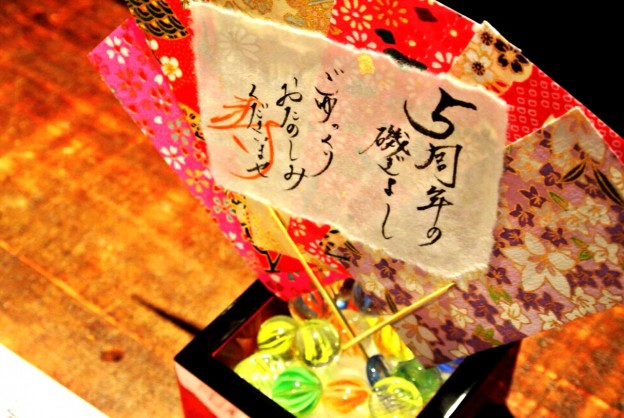 5周年の
磯ぎよし
ごゆっくり
おたのしみ
くださいませ